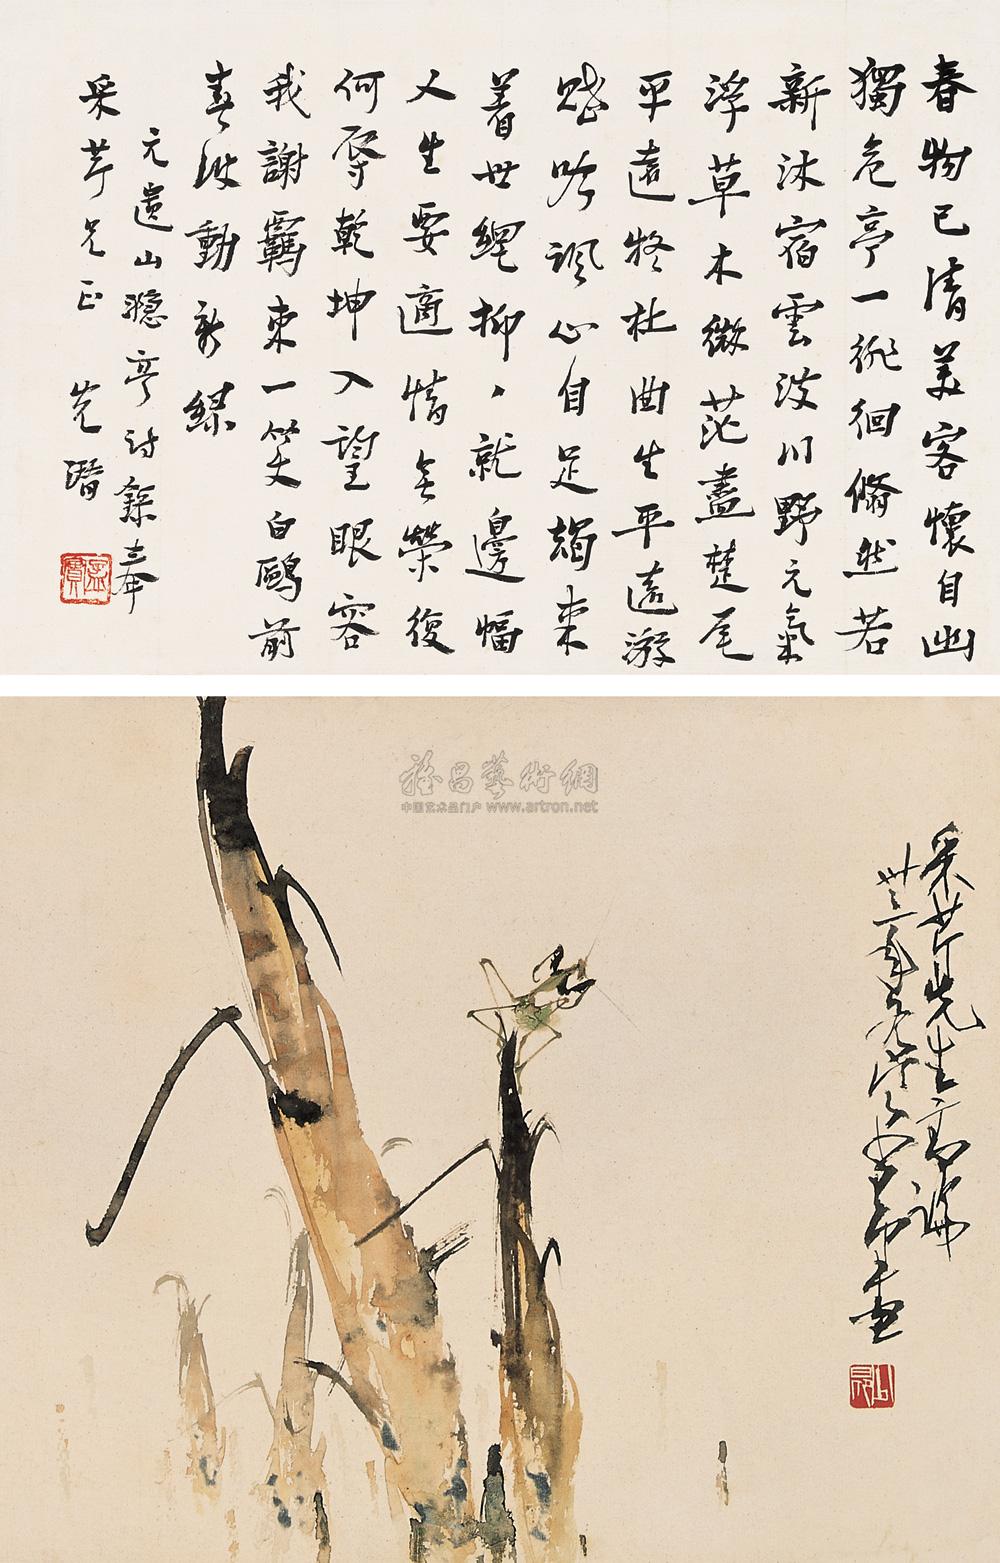 春物已清美客懷自幽
獨危亭一徘徊翛然若
新沐宿雲淡川野元氣
浮草木微茫盡楚尾
平遠疑杜曲生平遠游
賦吟諷心自足朅來
著世網抑、就邊幅
人生要適情無榮復
何辱乾坤入望眼容
我謝羈束一笑白鷗前
春波動新綠
元遺山穎亭詩錄奉
采芹兄正 先潛
雅昌藝術網
中国艺术品门户 www.artron.net
采芹先生
卅三年
畫